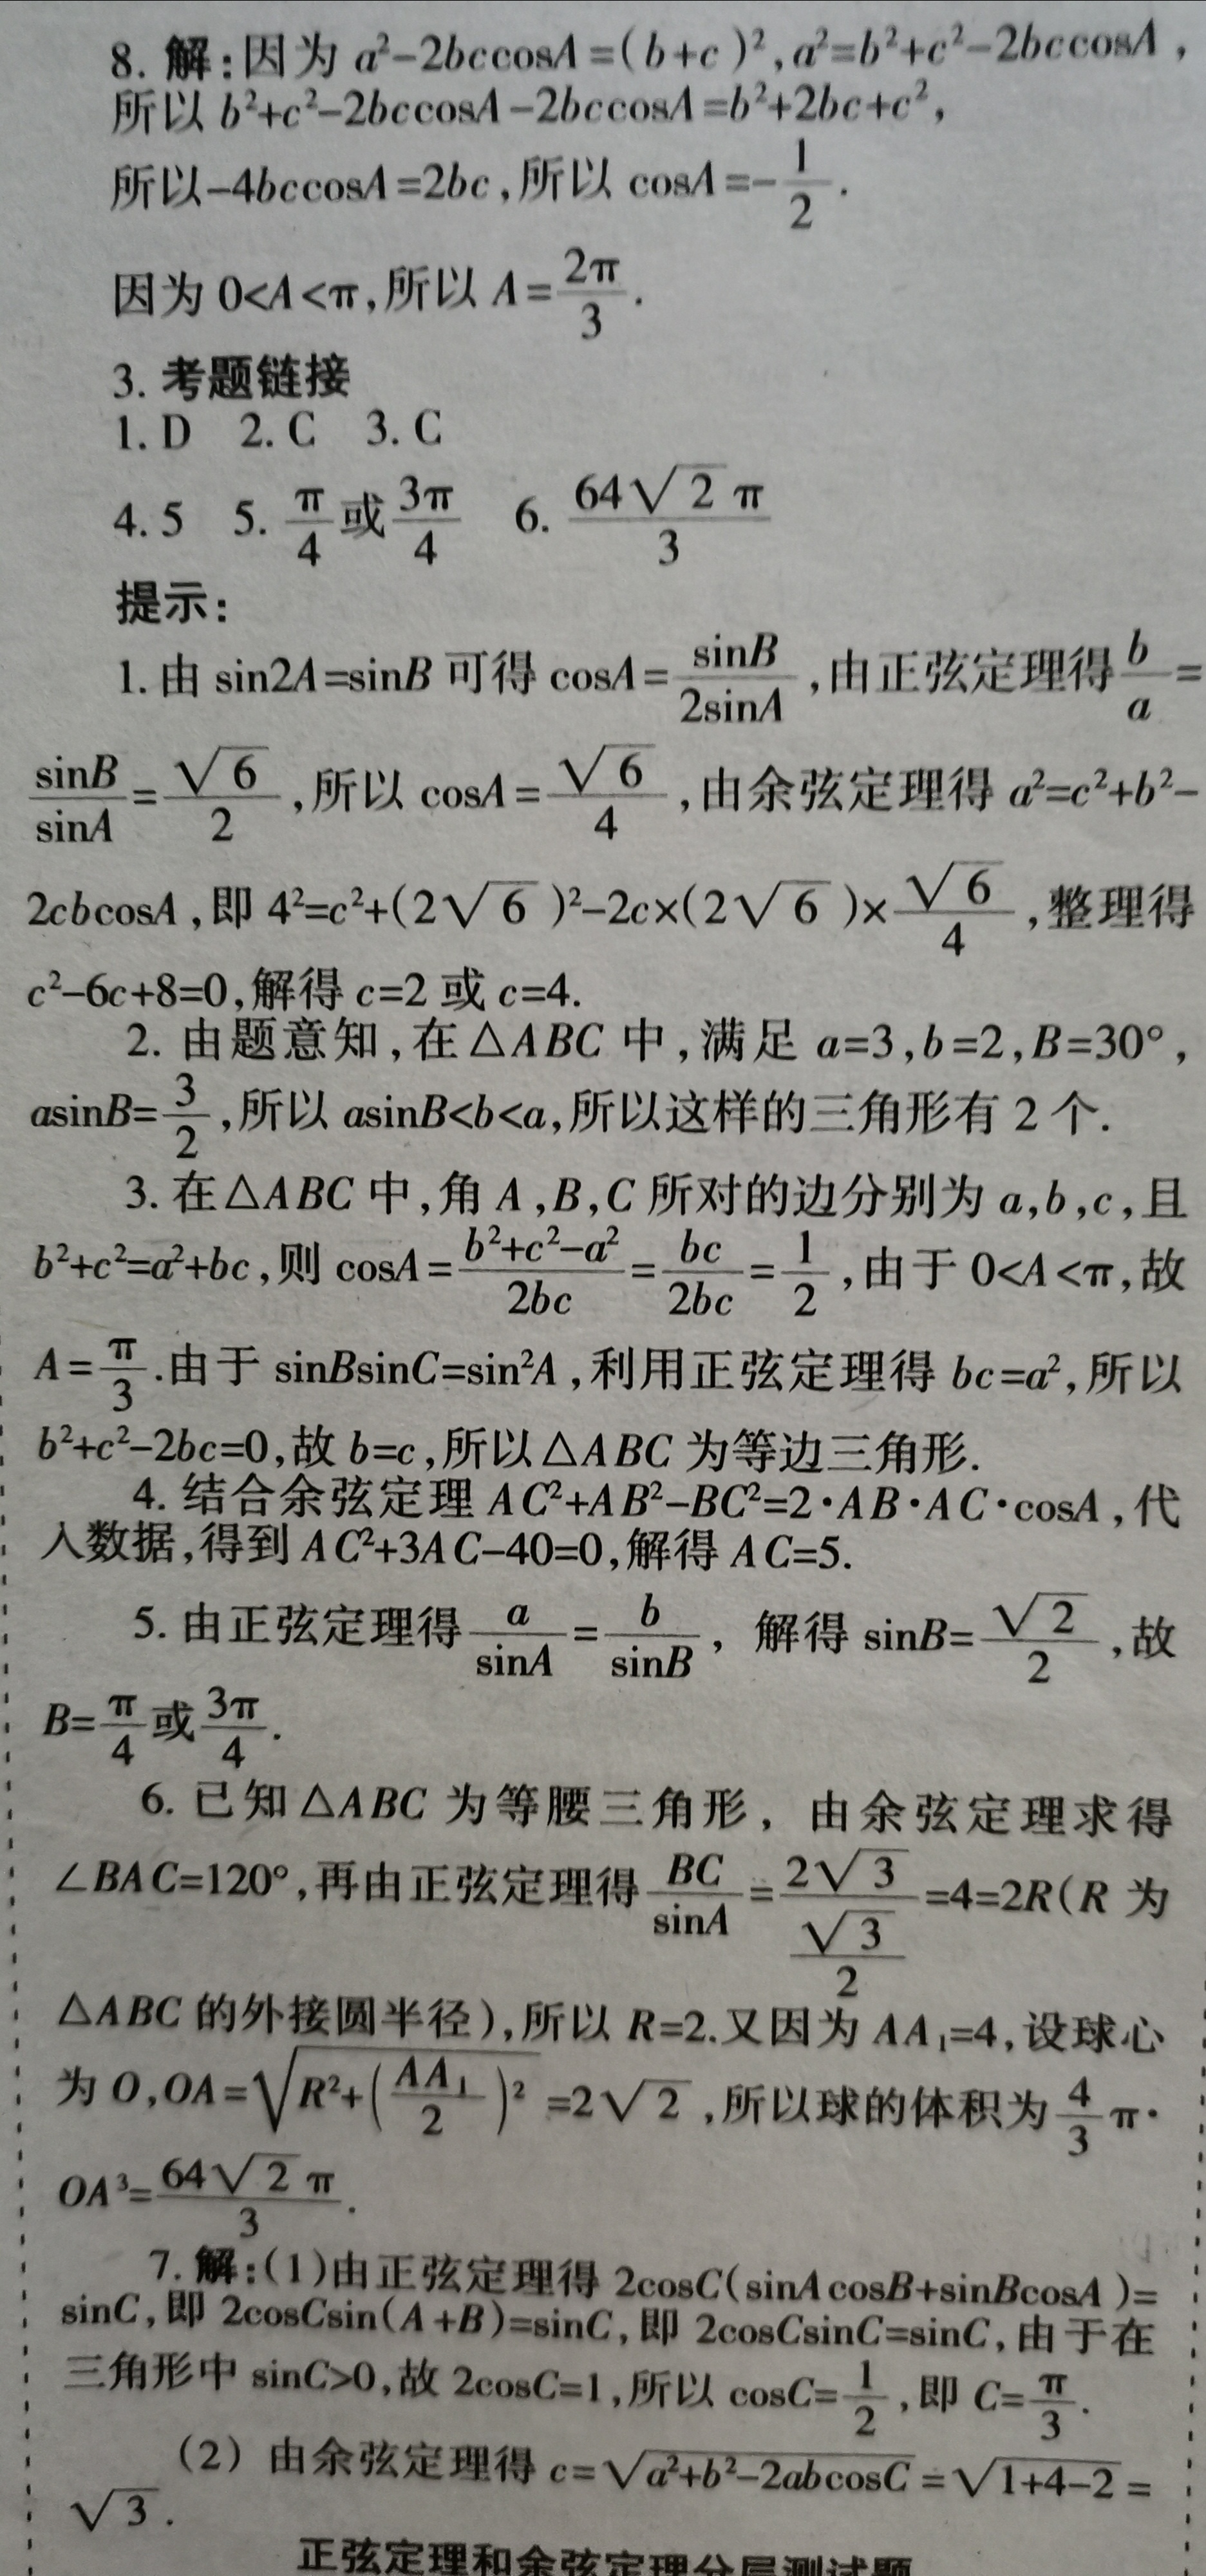 8. 解:因为 a²-2bccosA=(b+c)²,a²=b²+c²-2bccosA,
所以 b²+c²-2bccosA-2bccosA=b²+2bc+c²,
所以-4bccosA=2bc,所以 cosA=-1/2.
因为 0<A<π,所以 A=2π/3.
3. 考题链接
1. D 2. C 3. C
4. 5 5. π/4或3π/4 6. 64√2π/3
提示:
1. 由 sin2A=sinB 可得 cosA=sinB/2sinA,由正弦定理得b/a=
sinB/sinA=√6/2,所以 cosA=√6/4,由余弦定理得 a²=c²+b²-
2cbcosA,即 4²=c²+(2√6)²-2c×(2√6)×√6/4,整理得
c²-6c+8=0,解得 c=2 或 c=4.
2. 由题意知,在△ABC 中,满足 a=3,b=2,B=30°,
asinB=3/2,所以 asinB<b<a,所以这样的三角形有 2 个.
3. 在△ABC 中,角 A,B,C 所对的边分别为 a,b,c,且
b²+c²=a²+bc,则 cosA=(b²+c²-a²)/2bc=bc/2bc=1/2,由于 0<A<π,故
A=π/3.由于 sinBsinC=sin²A,利用正弦定理得 bc=a²,所以
b²+c²-2bc=0,故 b=c,所以△ABC 为等边三角形.
4. 结合余弦定理 AC²+AB²-BC²=2·AB·AC·cosA,代
入数据,得到 AC²+3AC-40=0,解得 AC=5.
5. 由正弦定理得a/sinA=b/sinB, 解得 sinB=√2/2,故
B=π/4或3π/4.
6. 已知△ABC 为等腰三角形, 由余弦定理求得
∠BAC=120°,再由正弦定理得BC/sinA=2√3/(√3/2)=4=2R(R 为
△ABC 的外接圆半径),所以 R=2.又因为 AA₁=4,设球心
为 O,OA=√(R²+(AA₁/2)²)=2√2,所以球的体积为4/3π·
OA³=64√2π/3.
7. 解:(1)由正弦定理得 2cosC(sinAcosB+sinBcosA)=
sinC,即 2cosCsin(A+B)=sinC,即 2cosCsinC=sinC,由于在
三角形中 sinC>0,故 2cosC=1,所以 cosC=1/2,即 C=π/3.
(2) 由余弦定理得 c=√(a²+b²-2abcosC)=√(1+4-2)=
√3.
正弦定理和余弦定理分层测试题